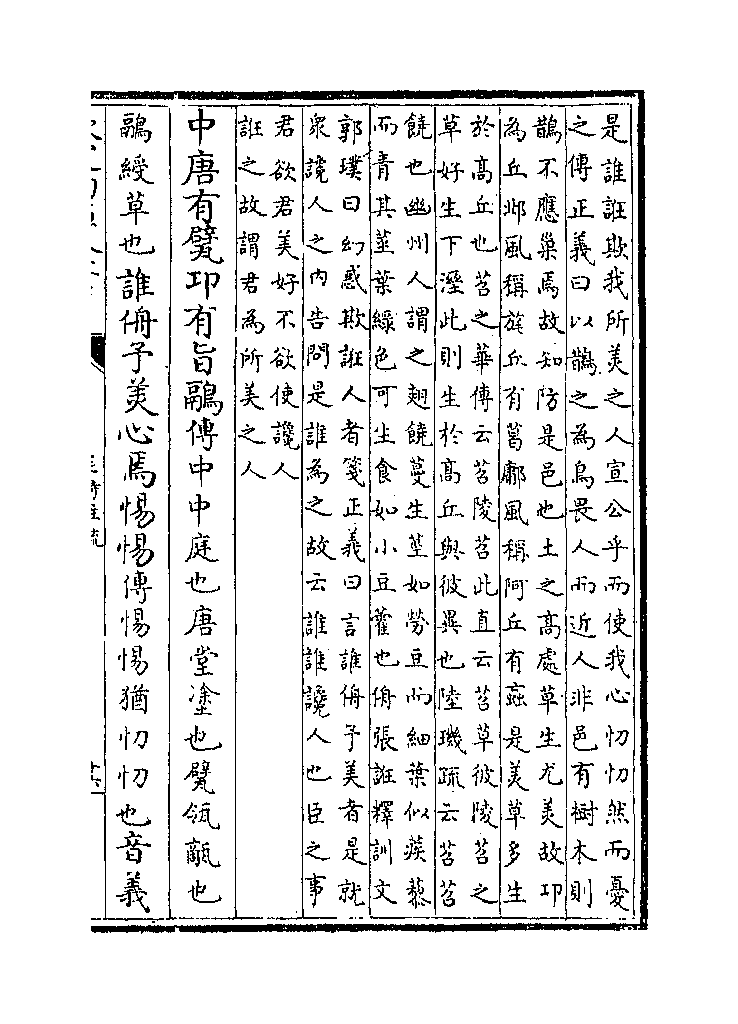 是誰誑欺我所美之人宣公乎而使我心忉忉然而憂
之傳正義曰以鵲之為鳥畏人而近人非邑有樹木則
鵲不應巢焉故知防是邑也土之髙處草生尤美故邛
為丘邶風稱旄丘有葛鄘風稱阿丘有蝱是美草多生
於髙丘也苕之華傳云苕陵苕此直云苕草彼陵苕之
草好生下溼此則生於髙丘與彼異也陸璣疏云苕苕
饒也幽州人謂之翹饒蔓生莖如勞豆而細葉似蒺藜
而青其莖葉緑色可生食如小豆藿也侜張誑釋訓文
郭璞曰幻惑欺誑人者箋正義曰言誰侜予美者是就
衆讒人之内告問是誰為之故云誰誰讒人也臣之事
君欲君美好不欲使讒人
誑之故謂君為所美之人
中唐有甓邛有旨鷊傳中中庭也唐堂塗也甓瓴甋也
鷊綬草也誰侜予美心焉惕惕傳惕惕猶忉忉也音義
毛詩注疏